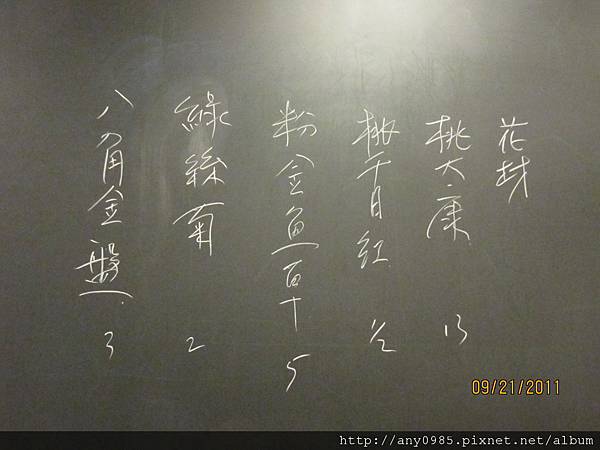 花材
桃大康 13
桃千日紅 1/2
粉金魚草 5
綠絲菊 2
八角金盤 3
09/21/2011
http://any0985.pixnet.net/album